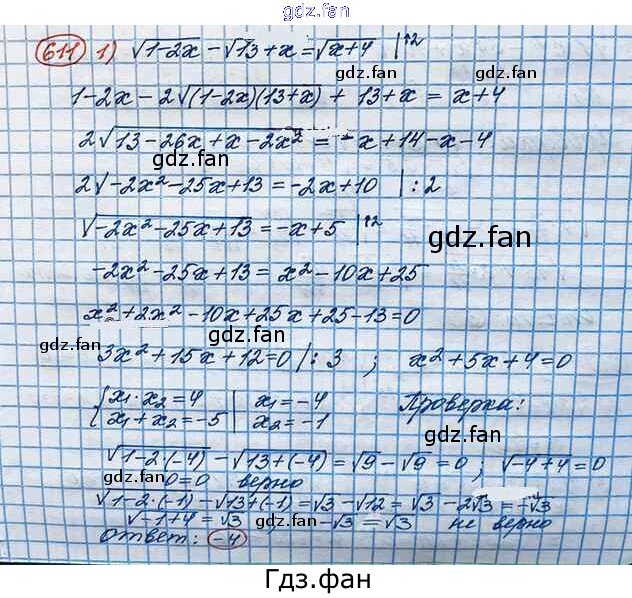 gdz.fan
611 1) √1-2x - √13+x = √x+4 |↑2
gdz.fan
1-2x-2√(1-2x)(13+x) + 13+x = x+4
2√13-26x+x-2x² = -x+14-x-4
gdz.fan gdz.fan
2√-2x²-25x+13 = -2x+10 | :2
√-2x²-25x+13 = -x+5 |↑2
gdz.fan
-2x²-25x+13 = x²-10x+25
x²+2x²-10x+25x+25-13=0
gdz.fan gdz.fan
3x²+15x+12=0 |: 3 ; x²+5x+4=0
{x₁·x₂=4 | x₁=-4 Проверка:
x₁+x₂=-5 | x₂=-1
gdz.fan
√1-2·(-4) - √13+(-4) = √9-√9 = 0 ; √-4+4=0
gdz.fan 0=0 верно
√1-2·(-1) - √13+(-1) = √3-√12 = √3-2√3=-√3
√-1+4 = √3 gdz.fan -√3=√3 не верно
Ответ: -4
Гдз.фан